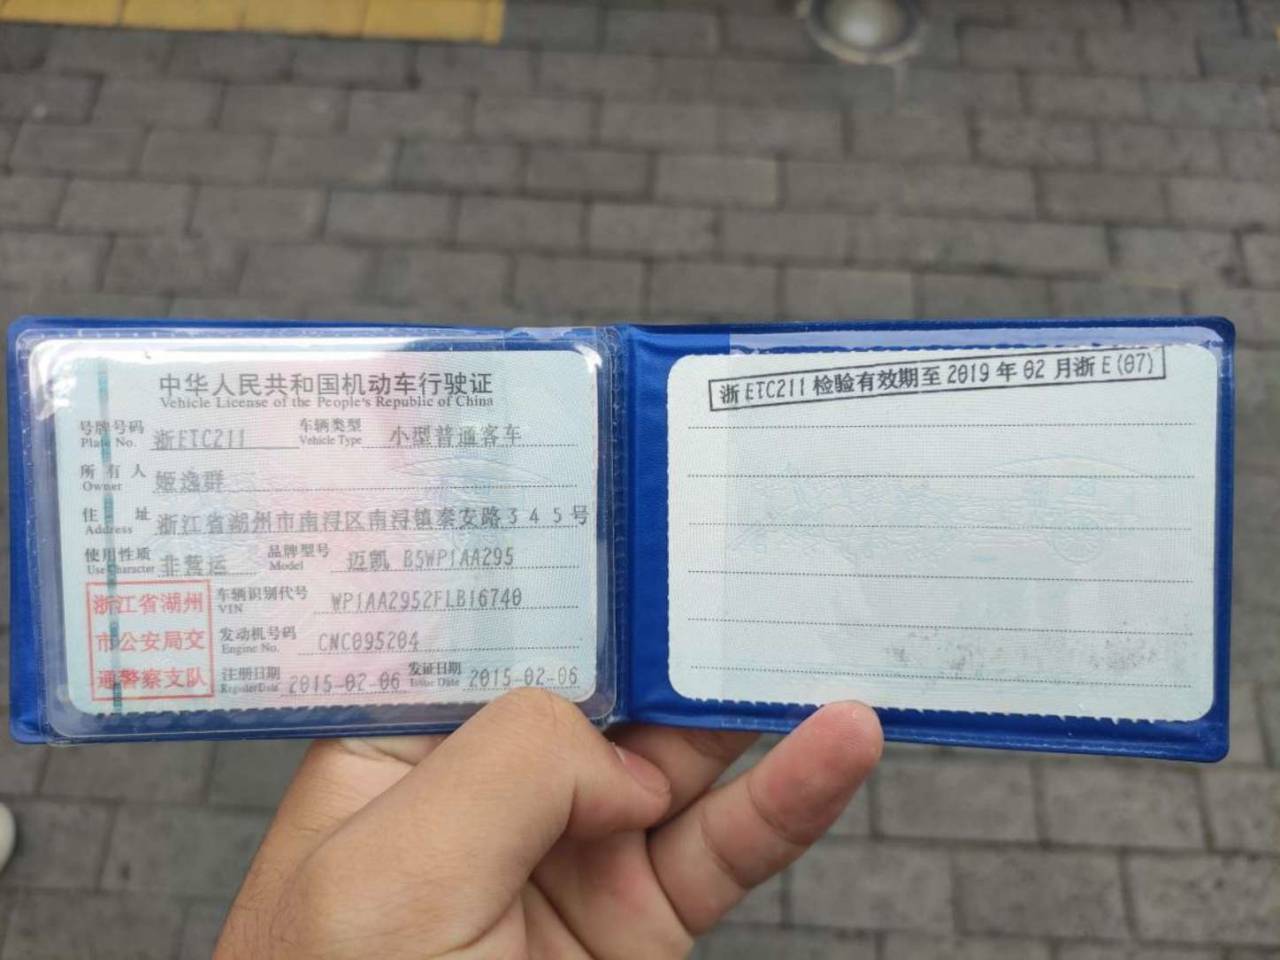 中华人民共和国机动车行驶证
Vehicle License of the People's Republic of China
号牌号码 浙ETC211 车辆类型 小型普通客车
Plate No. Vehicle Type
所有人 姬逸群
Owner
住址 浙江省湖州市南浔区南浔镇泰安路345号
Address
使用性质 非营运 品牌型号 迈凯 B5WP1AA295
Use Character Model
浙江省湖州
市公安局交
通警察支队
车辆识别代号 WP1AA2952FLB16740
VIN
发动机号码 CNC095204
Engine No.
注册日期 2015-02-06 发证日期 2015-02-06
Register Date Issue Date
浙ETC211 检验有效期至2019年02月浙E(07)